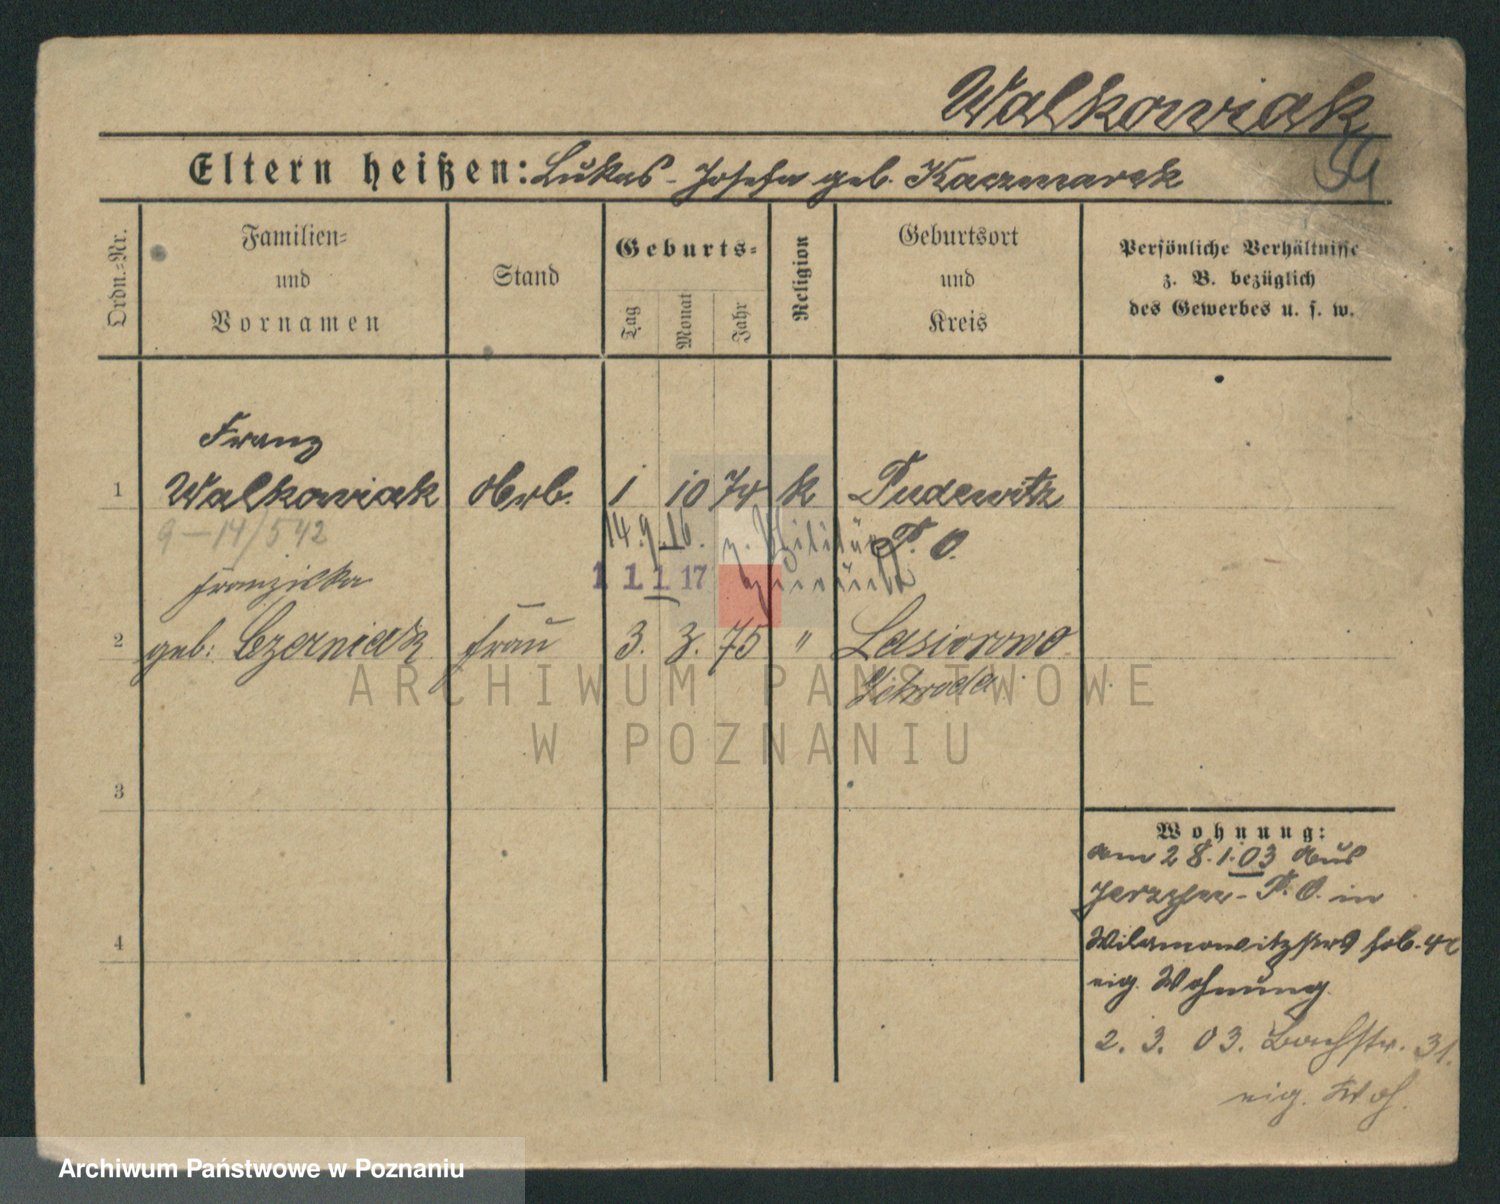 Walkowiak
Eltern heißen: Lukas - Josefa geb. Kaczmarek
Ordn.=Nr.
Familien=
und
Vornamen
Stand
Geburts=
Tag
Monat
Jahr
Religion
Geburtsort
und
Kreis
Persönliche Verhältnisse
z. B. bezüglich
des Gewerbes u. s. w.
Franz
1 Walkowiak Arb. 1 10 74 k Pudewitz
9-14/542
14.9.16. z. Militär P. O.
1 1. 1 17
Franziska
2 geb: Czerniak Frau 3. 3. 75 " Lasiorowo
Schroda
ARCHIWUM PAŃSTWOWE
W POZNANIU
3
Wohnung:
am 28.1.03 aus
P. O. in
4
Wilamowitzstr 9
eig. Wohnung.
2. 3. 03. Bachstr. 31.
eig. Woh.
Archiwum Państwowe w Poznaniu